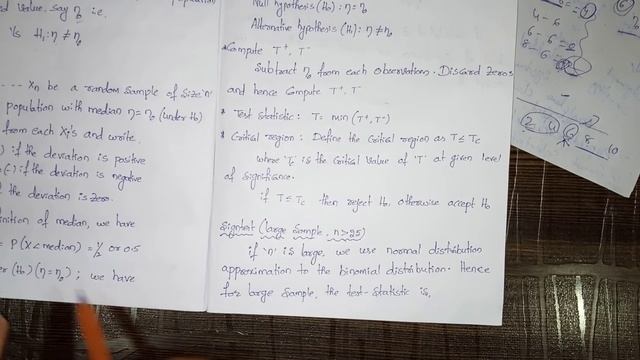 d value, say η₀ i.e.
Vs H₁: η ≠ η₀
.... Xn be a random sample of size 'n'
population with median η = η₀ (under H₀)
from each Xi's and write.
) if the deviation is positive
(-) if the deviation is negative
f the deviation is zero.
inition of median, we have
= P(X < median) = 1/2 or 0.5
er (H₀) (η = η₀) ; we have
Null hypothesis (H₀) : η = η₀
Alternative hypothesis (H₁) : η ≠ η₀
* Compute T⁺, T⁻
Subtract η₀ from each observations. Discard zeros
and hence Compute T⁺, T⁻
* Test Statistic : T = min (T⁺, T⁻)
* Critical region : Define the Critical region as T ≤ Tc
where 'Tc' is the Critical value of 'T' at given level
of significance.
if T ≤ Tc then reject H₀, otherwise accept H₀
Signtest (large sample, n > 25)
if 'n' is large, we use normal distribution
approximation to the binomial distribution. Hence
for large sample, the test-statistic is,
4 - 6
6 - 6 =
8 - 6
2 4 6 8 10